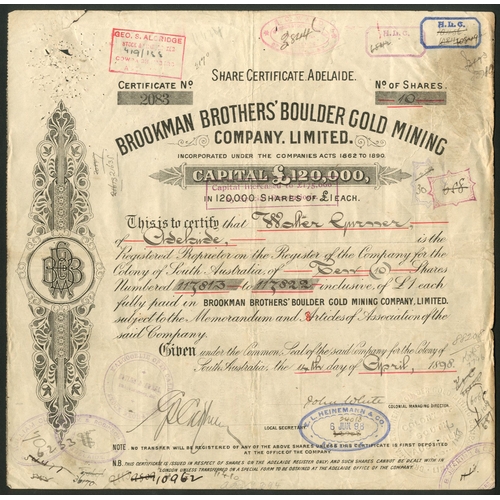 GEO. S. ALDRIDGE
H.D.G.
H.D.G.
SHARE CERTIFICATE. ADELAIDE.
CERTIFICATE No
No OF SHARES.
2083
10
BROOKMAN BROTHERS' BOULDER GOLD MINING
COMPANY. LIMITED.
INCORPORATED UNDER THE COMPANIES ACTS 1862 TO 1890
CAPITAL £120,000,
Capital increased to £175,000
IN 120,000 SHARES OF £1 EACH.
This is to certify that Walter Gurner
of Adelaide, is the
Registered Proprietor on the Register of the Company for the
Colony of South Australia, of Ten Shares
Numbered 117,813 to 117,822 inclusive, of £1 each
fully paid in BROOKMAN BROTHERS' BOULDER GOLD MINING COMPANY, LIMITED.
subject to the Memorandum and Articles of Association of the
said Company.
Given under the Common Seal of the said Company for the Colony of
South Australia, the 4th day of April, 1898.
John White
COLONIAL MANAGING DIRECTOR.
LOCAL SECRETARY
A. L. HEINEMANN & CO.
6 JUN 98
NOTE. NO TRANSFER WILL BE REGISTERED OF ANY OF THE ABOVE SHARES UNLESS THIS CERTIFICATE IS FIRST DEPOSITED
AT THE OFFICE OF THE COMPANY
N.B. THIS CERTIFICATE IS ISSUED IN RESPECT OF SHARES ON THE ADELAIDE REGISTER ONLY; AND SUCH SHARES CANNOT BE DEALT WITH IN
LONDON UNLESS TRANSFERRED ON A SPECIAL FORM TO BE OBTAINED AT THE ADELAIDE OFFICE OF THE COMPANY.
10962